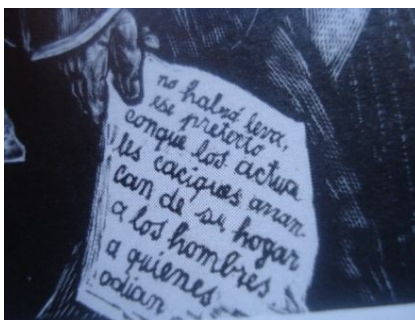 no habrá leva,
ese pretexto
conque los actua
les caciques arran
can de su hogar
a los hombres
a quienes
odian